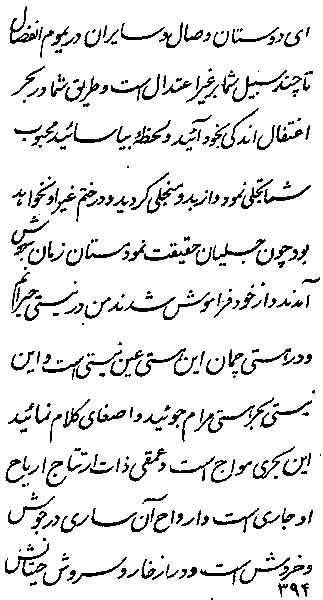 ای دوستان وصال و سایران در یوم انفصال
تا چند سبیل شما بر غیر اعتدال است و طریق شما در بحر
اغتفال اندکی بخود آئید و لحظهٔ بیاسائید محبوب
شما تجلی نمود و از بدو متجلی گردید و در ختم غیر او نخواهد
بود چون جبلیان حقیقت نمودستان زبان بجوش
آمدند و از خود فراموش شدند من در نیستی حیرانم
و در هستی چمان این هستی عین نیستی است و این
نیستی بحر هستی مرام جوئید و اصغای کلام نمائید
این بحری مواج است و عمقی ذات ارتتاج اریاح
او جاری است و ارواح آن ساری در جوش
و خروش است و در از خار و سروش حیتانش
۳۹۴